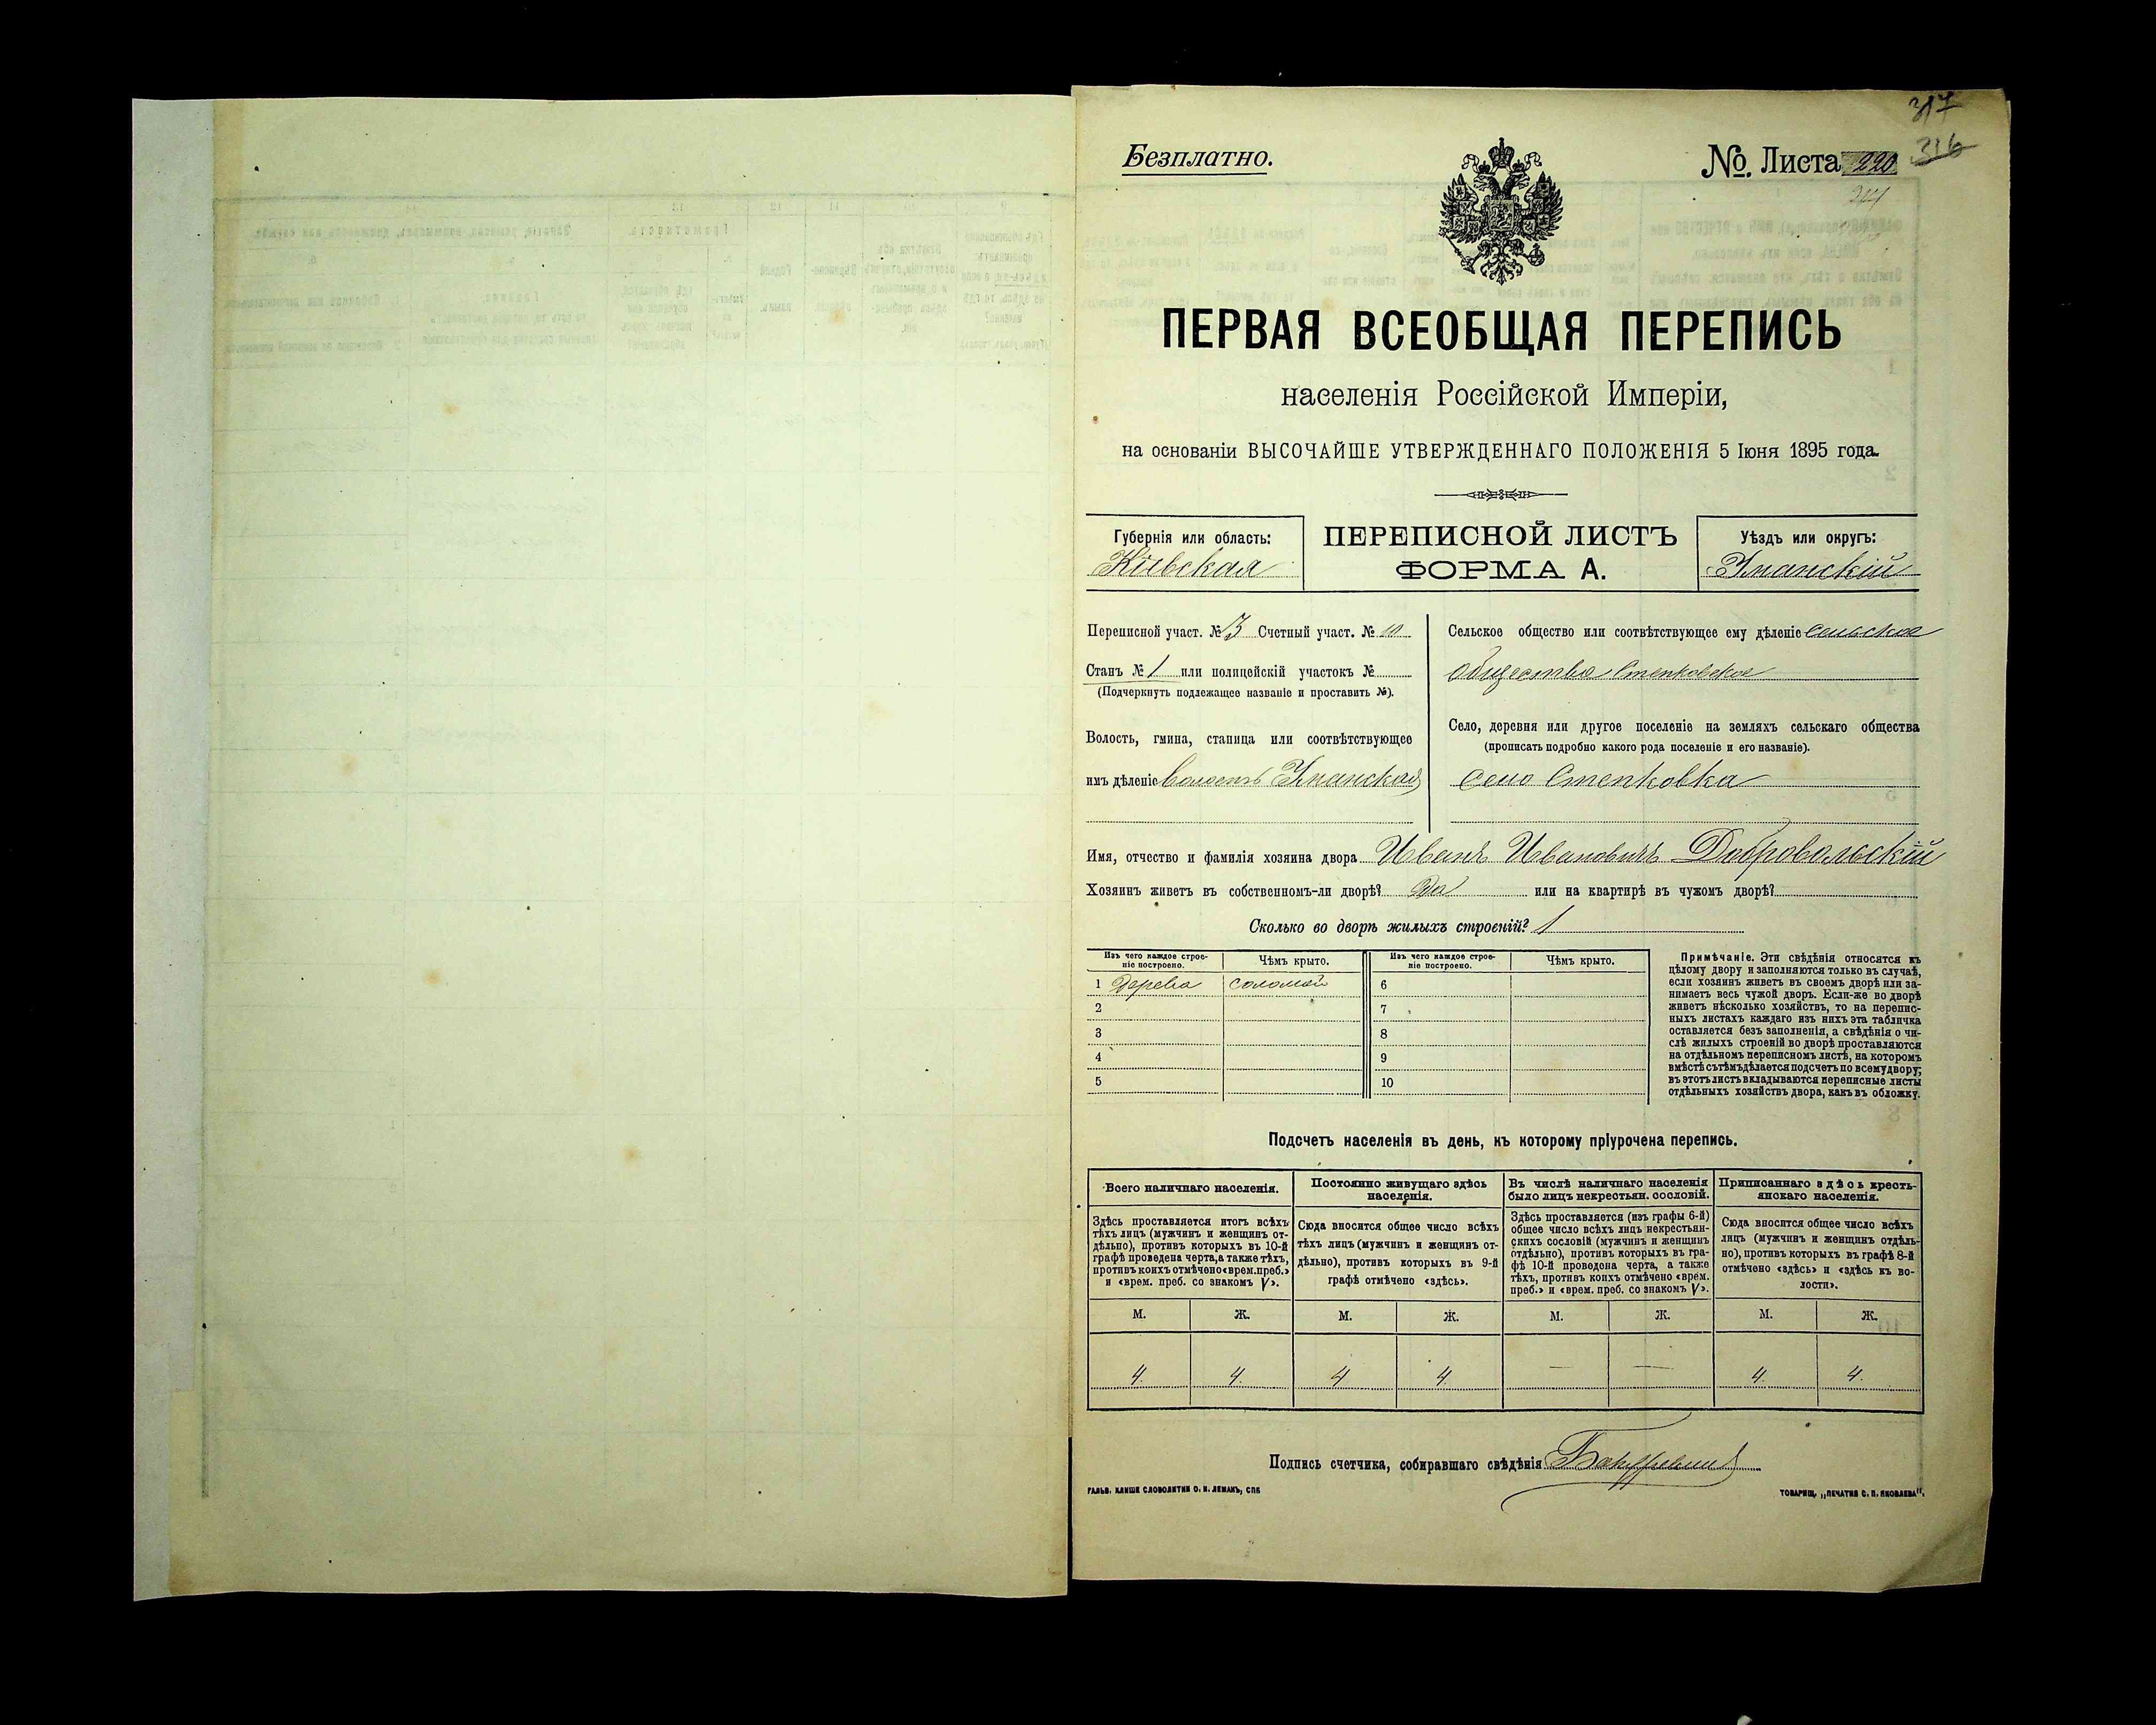 317
316
Безплатно.
№. Листа 220
ПЕРВАЯ ВСЕОБЩАЯ ПЕРЕПИСЬ
населенія Россійской Имперіи,
на основаніи ВЫСОЧАЙШЕ УТВЕРЖДЕННАГО ПОЛОЖЕНІЯ 5 Іюня 1895 года.
Губернія или область:
Кіевская
ПЕРЕПИСНОЙ ЛИСТЪ
ФОРМА А.
Уѣздъ или округъ:
Уманскій
Переписной участ. № 3 Счетный участ. № 10
Станъ № 1 или полицейскій участокъ №
(Подчеркнуть подлежащее названіе и проставить №).
Волость, гмина, станица или соотвѣтствующее
имъ дѣленіе волость Уманская
Сельское общество или соотвѣтствующее ему дѣленіе сельское
общество Степковское
Село, деревня или другое поселеніе на земляхъ сельскаго общества
(прописать подробно какого рода поселеніе и его названіе).
село Степковка
Имя, отчество и фамилія хозяина двора Иванъ Ивановичъ Добровольскій
Хозяинъ живетъ въ собственномъ-ли дворѣ? Да или на квартирѣ въ чужомъ дворѣ?
Сколько во дворѣ жилыхъ строеній? 1
Изъ чего каждое строе-
ніе построено.
Чѣмъ крыто.
Изъ чего каждое строе-
ніе построено.
Чѣмъ крыто.
1 Дерева соломой 6
2 7
3 8
4 9
5 10
Примѣчаніе. Эти свѣдѣнія относятся къ
цѣлому двору и заполняются только въ случаѣ,
если хозяинъ живетъ въ своемъ дворѣ или за-
нимаетъ весь чужой дворъ. Если-же во дворѣ
живетъ нѣсколько хозяйствъ, то на перепис-
ныхъ листахъ каждаго изъ нихъ эта табличка
оставляется безъ заполненія, а свѣдѣнія о чи-
слѣ жилыхъ строеній во дворѣ проставляются
на отдѣльномъ переписномъ листѣ, на которомъ
вмѣстѣ съ тѣмъ дѣлается подсчетъ по всему двору;
въ этотъ листъ вкладываются переписные листы
отдѣльныхъ хозяйствъ двора, какъ въ обложку.
Подсчетъ населенія въ день, къ которому пріурочена перепись.
Всего наличнаго населенія.
Здѣсь проставляется итогъ всѣхъ
тѣхъ лицъ (мужчинъ и женщинъ от-
дѣльно), противъ которыхъ въ 10-й
графѣ проведена черта, а также тѣхъ,
противъ коихъ отмѣчено «врем. преб.»
и «врем. преб. со знакомъ V».
Постоянно живущаго здѣсь
населенія.
Сюда вносится общее число всѣхъ
тѣхъ лицъ (мужчинъ и женщинъ от-
дѣльно), противъ которыхъ въ 9-й
графѣ отмѣчено «здѣсь».
Въ числѣ наличнаго населенія
было лицъ некрестьян. сословій.
Здѣсь проставляется (изъ графы 6-й)
общее число всѣхъ лицъ некрестьян-
скихъ сословій (мужчинъ и женщинъ
отдѣльно), противъ которыхъ въ гра-
фѣ 10-й проведена черта, а также
тѣхъ, противъ коихъ отмѣчено «врем.
преб.» и «врем. преб. со знакомъ V».
Приписаннаго здѣсь кресть-
янскаго населенія.
Сюда вносится общее число всѣхъ
лицъ (мужчинъ и женщинъ отдѣль-
но), противъ которыхъ въ графѣ 8-й
отмѣчено «здѣсь» и «здѣсь къ во-
лости».
М. Ж. М. Ж. М. Ж. М. Ж.
4. 4. 4 4. — — 4. 4.
Подпись счетчика, собиравшаго свѣдѣнія
ГАЛЬВ. КЛИШЕ СЛОВОЛИТНИ О. И. ЛЕМАНЪ, СПБ
ТОВАРИЩ. „ПЕЧАТНЯ С. П. ЯКОВЛЕВА".